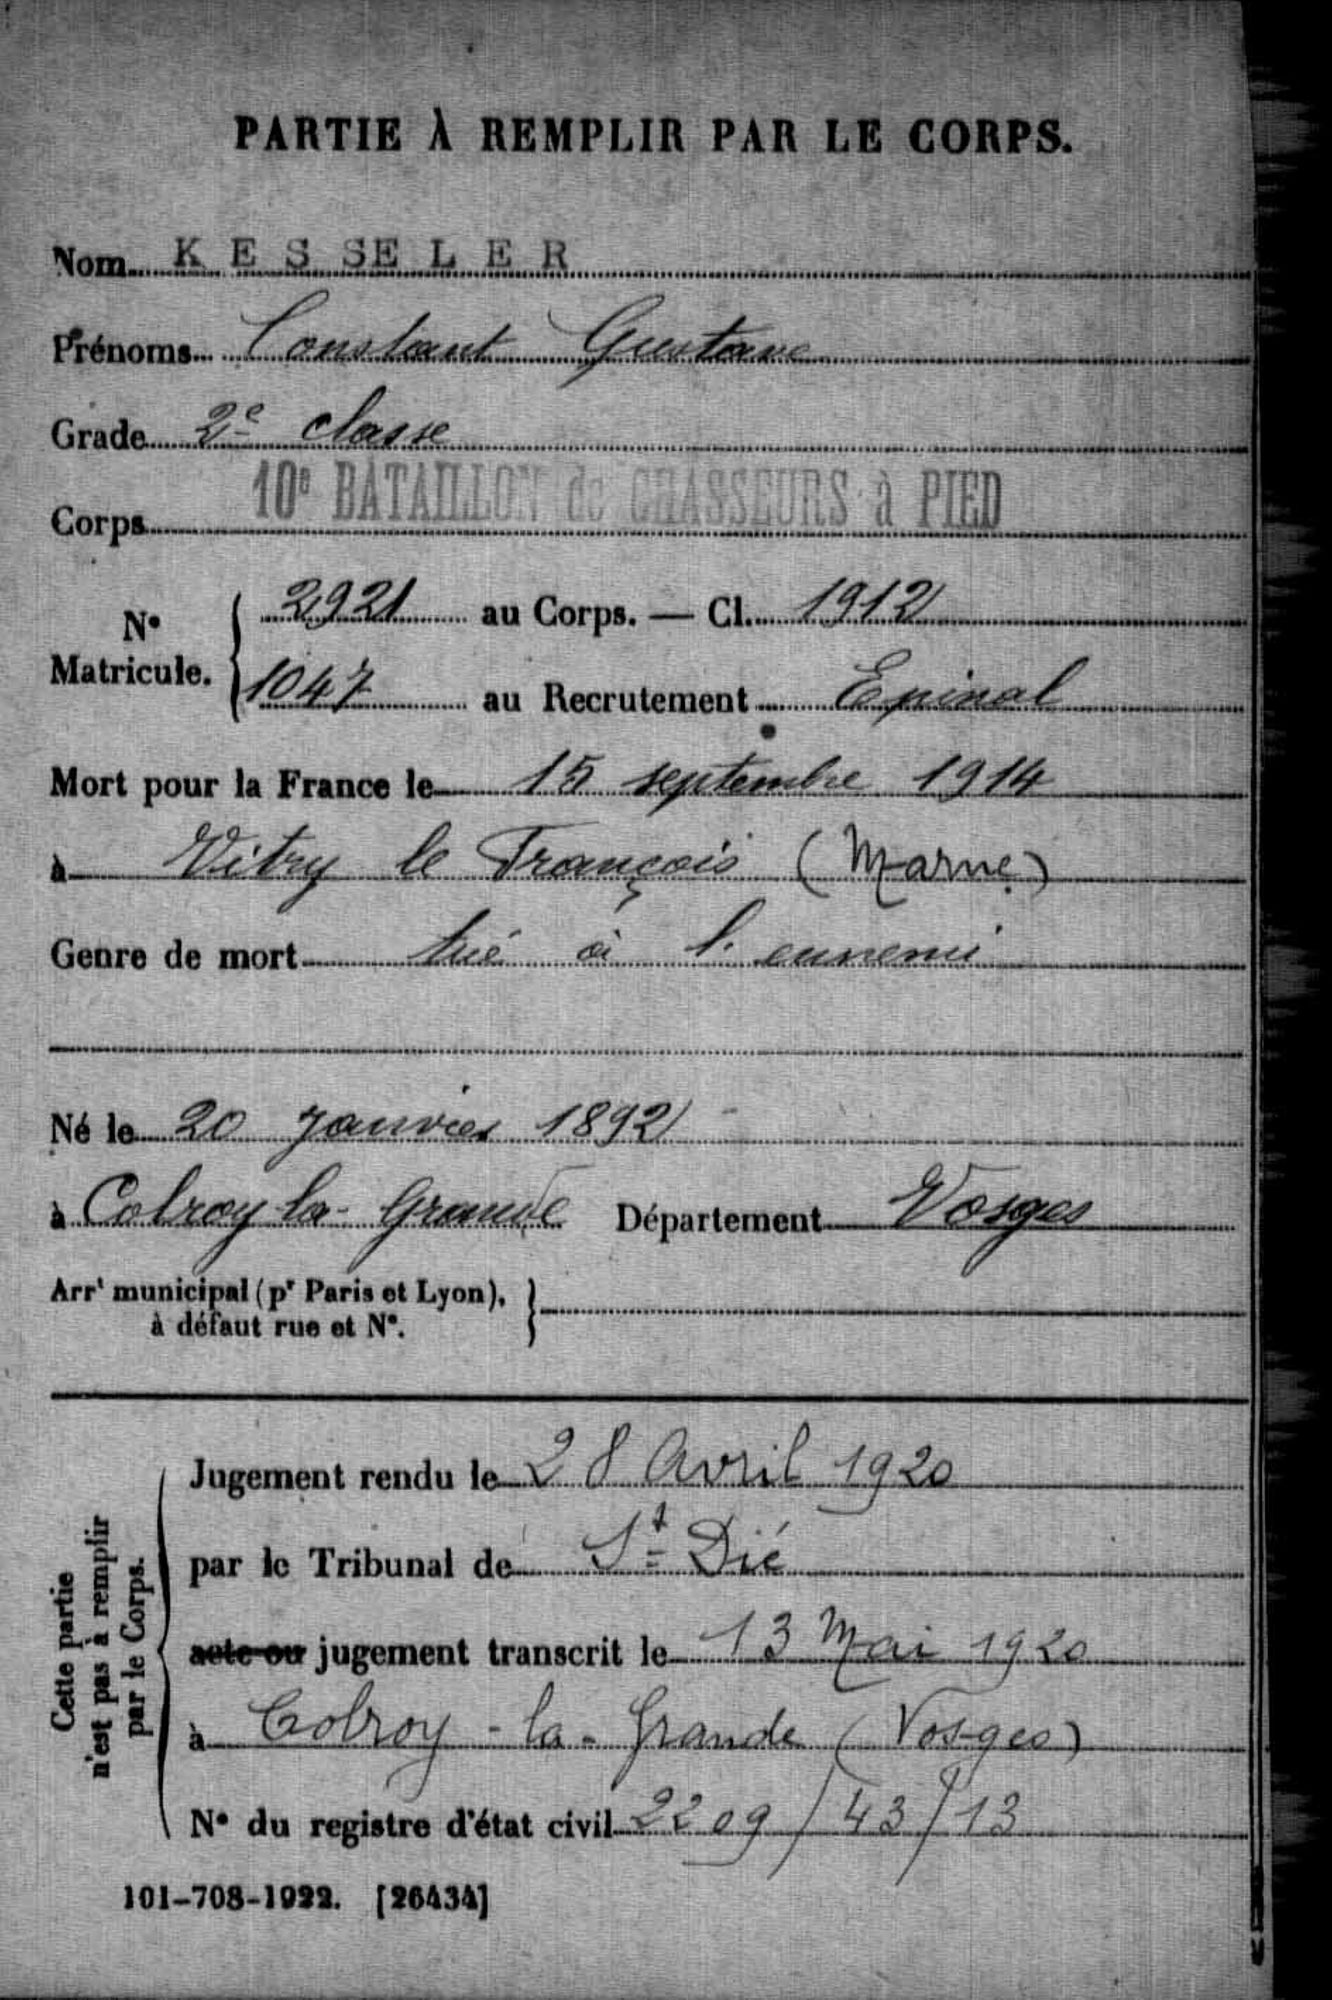 PARTIE À REMPLIR PAR LE CORPS.
Nom KESSELER
Prénoms Constant Gustave
Grade 2e classe
Corps 10e BATAILLON de CHASSEURS à PIED
N° Matricule. 2921 au Corps. — Cl. 1912
1047 au Recrutement Epinal
Mort pour la France le 15 septembre 1914
à Vitry le François (Marne)
Genre de mort tué à l'ennemi
Né le 20 Janvier 1892
à Colroy-la-Grande Département Vosges
Arrt municipal (pr Paris et Lyon),
à défaut rue et N°.
Cette partie
n'est pas à remplir
par le Corps.
Jugement rendu le 28 Avril 1920
par le Tribunal de St Dié
acte ou jugement transcrit le 13 Mai 1920
à Colroy-la-Grande (Vosges)
N° du registre d'état civil 2209/43/13
101-708-1922. [26434]